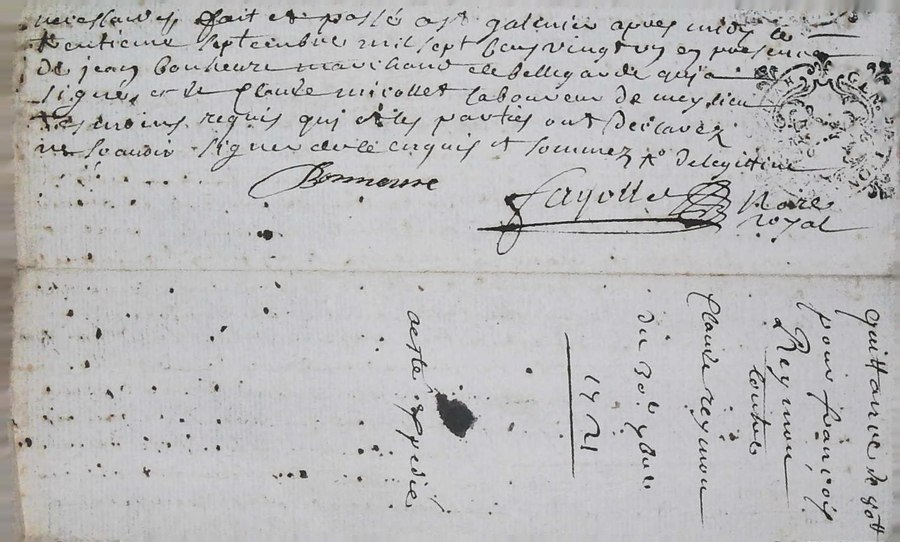 necessaires, fait et passé a st galmier apres midy le
trentieme septembre mil sept cens vingt un en presence
de jean bonheure marchand de bellegarde qui a
signé, et de Claude micollet laboureur de meylieu
tesmoins requis qui et les parties ont declarez
ne scavoir signer de ce enquis et sommez
Bonneure
fayolle Nore
royal
quittance de
pour françois
Reymon
contre
Claude reymon
du 30e 7bre
1721
acte expedié